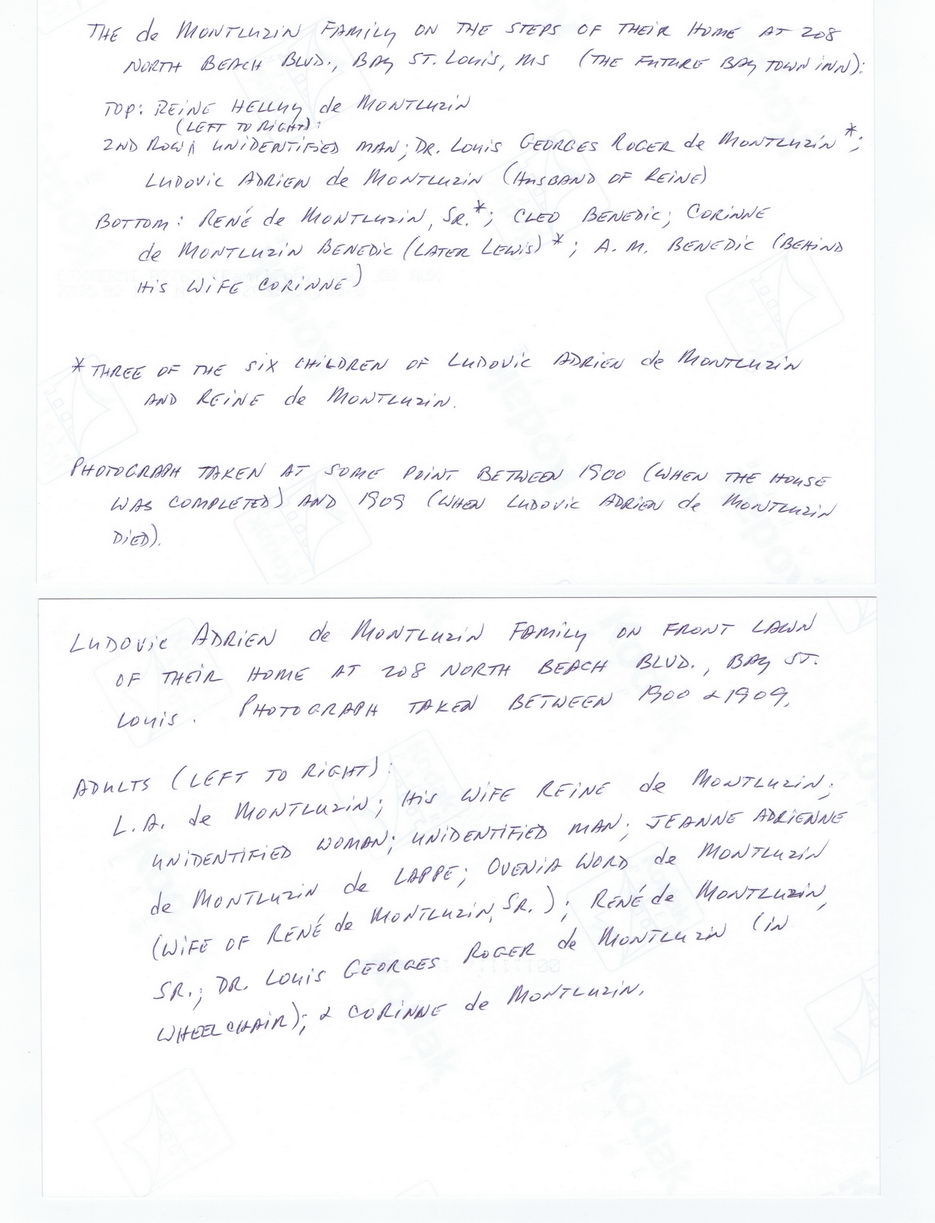 THE de MONTLUZIN FAMILY ON THE STEPS OF THEIR HOME AT 208
NORTH BEACH BLVD., BAY ST. LOUIS, MS (THE FUTURE BAY TOWN INN):
TOP: REINE HELLUY de MONTLUZIN
(LEFT TO RIGHT):
2ND ROW: UNIDENTIFIED MAN; DR. LOUIS GEORGES ROGER de MONTLUZIN*;
LUDOVIC ADRIEN de MONTLUZIN (HUSBAND OF REINE)
BOTTOM: RENÉ de MONTLUZIN, SR.*; CLEO BENEDIC; CORINNE
de MONTLUZIN BENEDIC (LATER LEWIS)*; A. M. BENEDIC (BEHIND
HIS WIFE CORINNE)
* THREE OF THE SIX CHILDREN OF LUDOVIC ADRIEN de MONTLUZIN
AND REINE de MONTLUZIN.
PHOTOGRAPH TAKEN AT SOME POINT BETWEEN 1900 (WHEN THE HOUSE
WAS COMPLETED) AND 1909 (WHEN LUDOVIC ADRIEN de MONTLUZIN
DIED).
LUDOVIC ADRIEN de MONTLUZIN FAMILY ON FRONT LAWN
OF THEIR HOME AT 208 NORTH BEACH BLVD., BAY ST.
LOUIS. PHOTOGRAPH TAKEN BETWEEN 1900 & 1909.
ADULTS (LEFT TO RIGHT):
L.A. de MONTLUZIN; HIS WIFE REINE de MONTLUZIN;
UNIDENTIFIED WOMAN; UNIDENTIFIED MAN; JEANNE ADRIENNE
de MONTLUZIN de LAPPE; OVENIA WORD de MONTLUZIN
(WIFE OF RENÉ de MONTLUZIN, SR.); RENÉ de MONTLUZIN,
SR.; DR. LOUIS GEORGES ROGER de MONTLUZIN (IN
WHEELCHAIR); & CORINNE de MONTLUZIN.
Kodak
Kodak